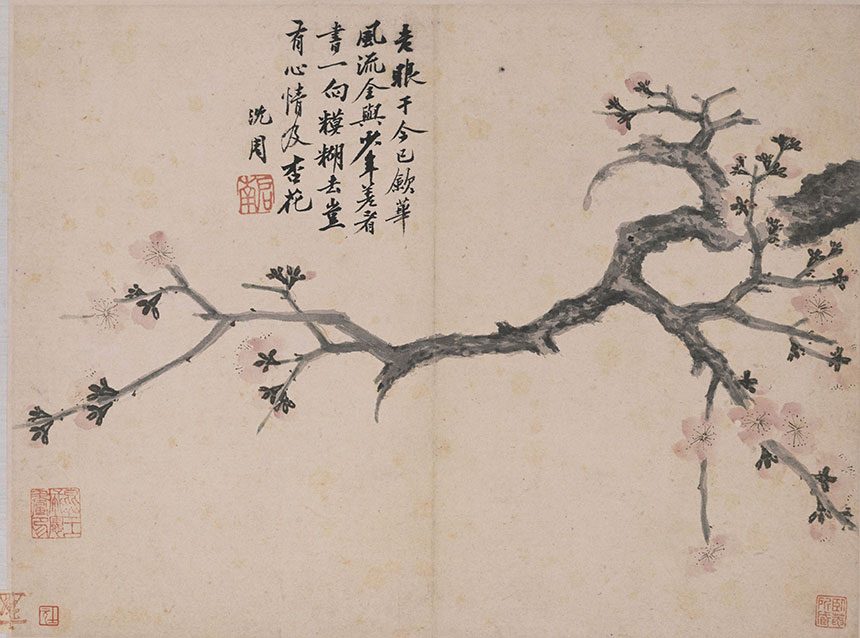 老眼于今已歛華
風流全與少年差看
書一向糢糊去豈
有心情及杏花
沈周
啟南
臥菴所藏